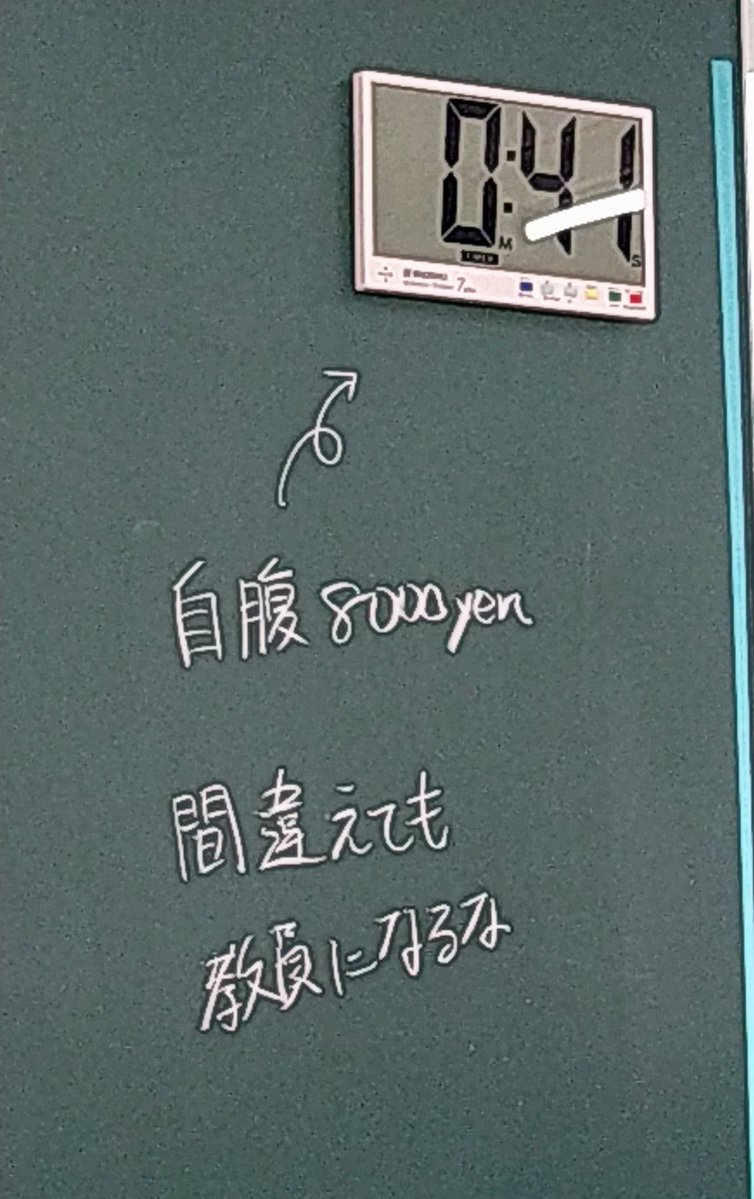 0:41
M
S
7
自腹8000yen
間違えても
教員になるな